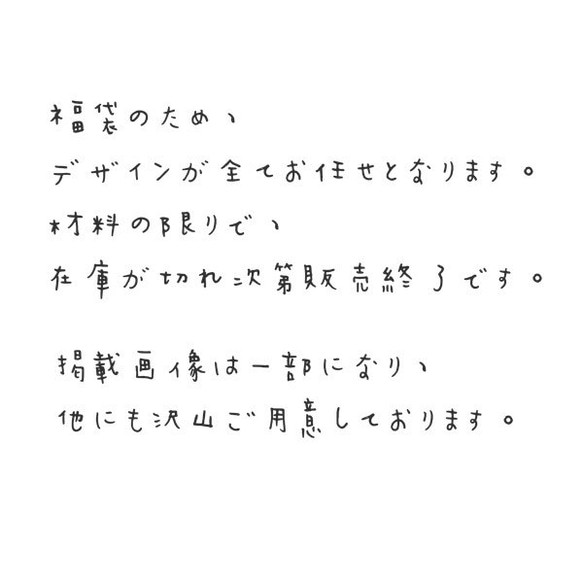 福袋のため、
デザインが全てお任せとなります。
材料の限りで、
在庫が切れ次第販売終了です。
掲載画像は一部になり、
他にも沢山ご用意しております。